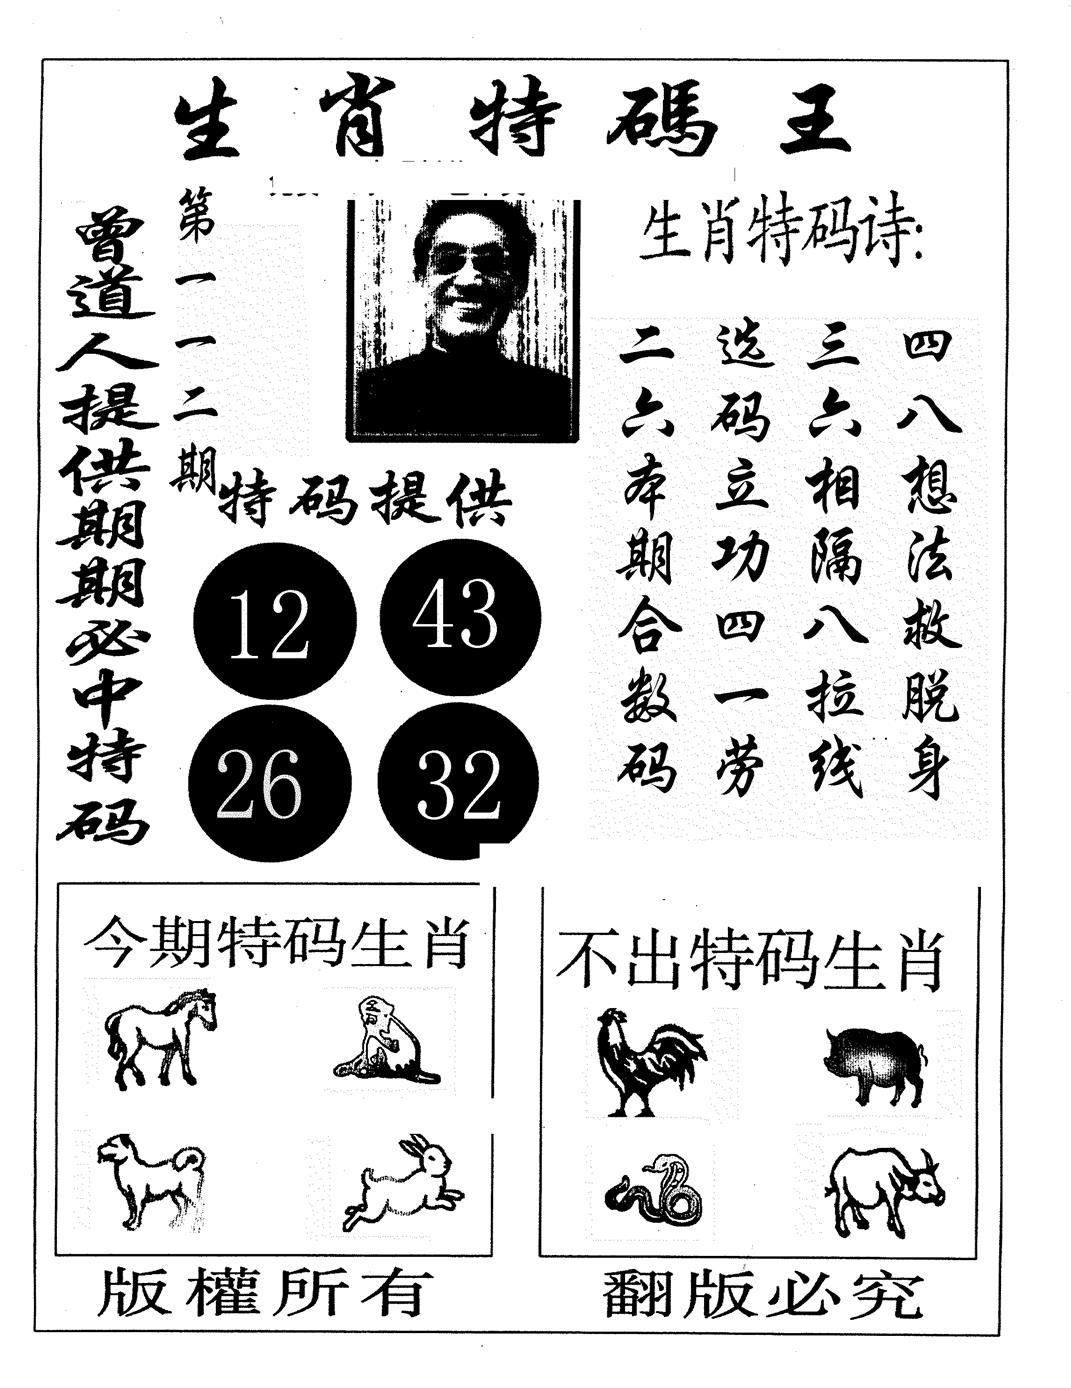 生肖特碼王
曾道人提供期期必中特码
第一一二期
生肖特码诗:
四八想法救脱身
三六相隔八拉线
选码立功四一劳
二六本期合数码
特码提供
12 43
26 32
今期特码生肖
不出特码生肖
版權所有
翻版必究